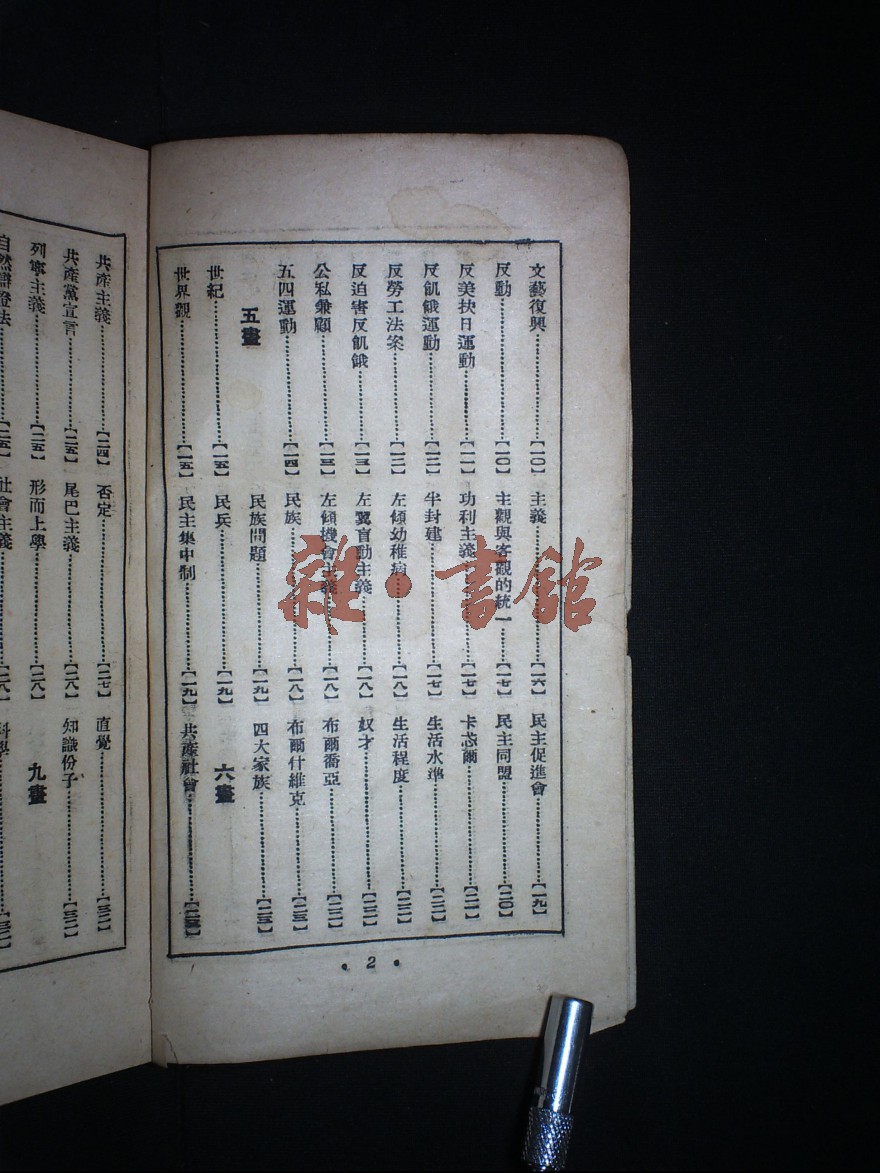 文藝復興……【一〇】
反動……【一〇】
反美扶日運動……【一一】
反飢餓運動……【一二】
反勞工法案……【一二】
反迫害反飢餓……【一三】
公私兼顧……【一三】
五四運動……【一四】
五畫
世紀……【一五】
世界觀……【一五】
主義……【一六】
主觀與客觀的統一……【一七】
功利主義……【一七】
半封建……【一七】
左傾幼稚病……【一八】
左翼盲動主義……【一八】
左傾機會主義……【一八】
民族……【一八】
民族問題……【一九】
民兵……【一九】
民主集中制……【一九】
民主促進會……【一九】
民主同盟……【二〇】
卡忒爾……【二一】
生活水準……【二二】
生活程度……【二二】
奴才……【二二】
布爾喬亞……【二二】
布爾什維克……【二三】
四大家族……【二三】
六畫
共產社會……【二三】
• 2 •
共產主義……【二四】
共產黨宣言……【二五】
列寧主義……【二五】
自然辯證法……【二五】
否定……【二七】
尾巴主義……【二八】
形而上學……【二八】
社會主義……【二八】
直覺……【三一】
知識份子……【三二】
九畫
科學……【三二】
雜·書館